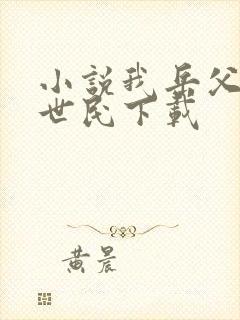 小説我岳父
世民下載
黄晨